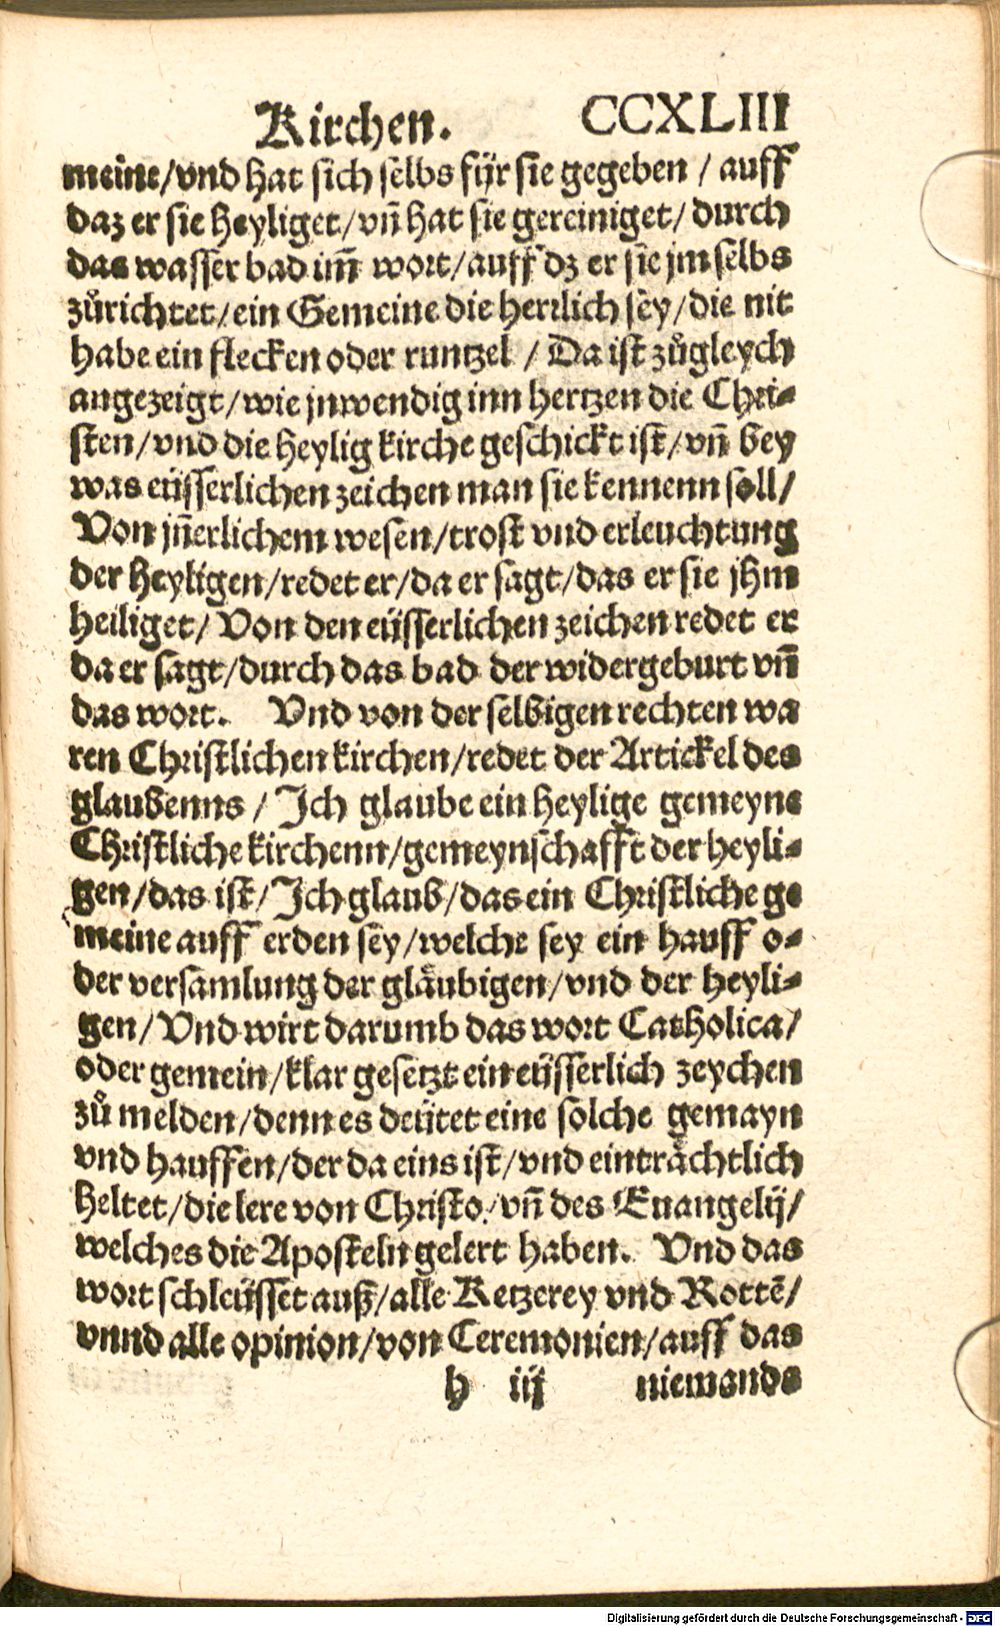 Kirchen. CCXLIII
meine/vnd hat sich selbs für sie gegeben / auff
daz er sie heyliget/vñ hat sie gereiniget/ durch
das wasser bad im̃ wort/auff dz er sie jm selbs
zůrichtet/ein Gemeine die herrlich sey/die nit
habe ein flecken oder runtzel / Da ist zůgleych
angezeigt/wie jnwendig inn hertzen die Chri-
sten/vnd die heylig kirche geschickt ist/vñ bey
was eüsserlichen zeichen man sie kennenn soll/
Von jñerlichem wesen/trost vnd erleuchtung
der heyligen/redet er/da er sagt/das er sie jhm
heiliget/ Von den eüsserlichen zeichen redet er
da er sagt/durch das bad der widergeburt vñ
das wort. Vnd von der selbigen rechten wa
ren Christlichen kirchen/redet der Artickel des
glaubenns / Ich glaube ein heylige gemeyne
Christliche kirchenn/gemeynschafft der heyli-
gen/das ist/Ich glaub/das ein Christliche ge
meine auff erden sey/welche sey ein hauff o-
der versamlung der gläubigen/vnd der heyli-
gen/Vnd wirt darumb das wort Catholica/
oder gemein/klar gesetzt ein eüsserlich zeychen
zů melden/denn es deütet eine solche gemayn
vnd hauffen/der da eins ist/vnd einträchtlich
heltet/die lere von Christo/vñ des Euangelij/
welches die Aposteln gelert haben. Vnd das
wort schleüsset auß/alle Ketzerey vnd Rottẽ/
vnnd alle opinion/von Ceremonien/auff das
h iij niemands
Digitalisierung gefördert durch die Deutsche Forschungsgemeinschaft - DFG